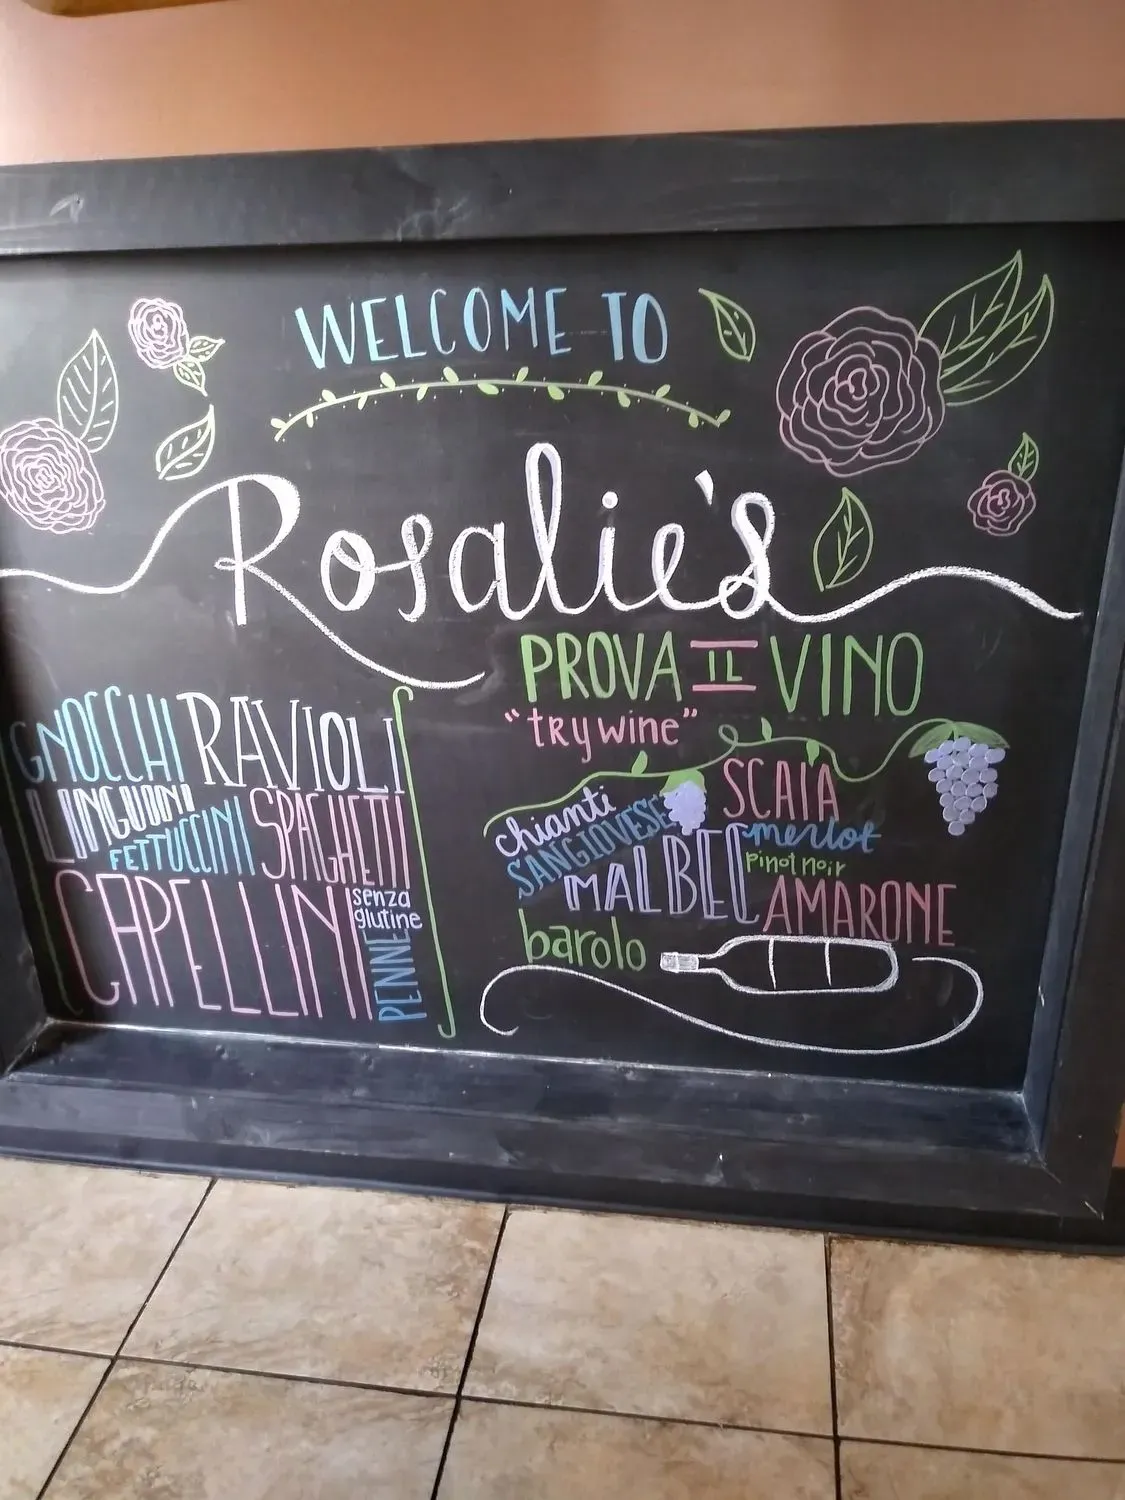 WELCOME TO
Rosalie's
GNOCCHI RAVIOLI
LINGUINI
FETTUCCINI SPAGHETTI
CAPELLINI
senza
glutine
PENNE
PROVA IL VINO
"try wine"
chianti SCAIA
SANGIOVESE merlot
MALBEC pinot noir
AMARONE
barolo